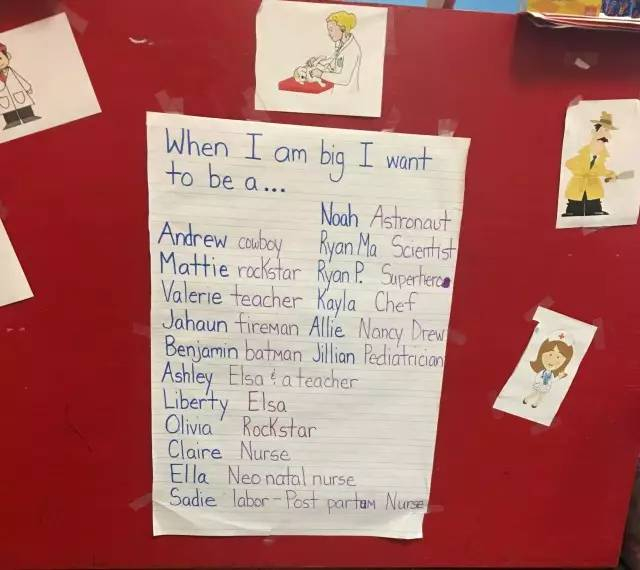 When I am big I want
to be a...
Noah Astronaut
Andrew cowboy Ryan Ma Scientist
Mattie rockstar Ryan P. Superhero
Valerie teacher Kayla Chef
Jahaun fireman Allie Nancy Drew
Benjamin batman Jillian Pediatrician
Ashley Elsa & a teacher
Liberty Elsa
Olivia Rockstar
Claire Nurse
Ella Neonatal nurse
Sadie labor-Post partum Nurse